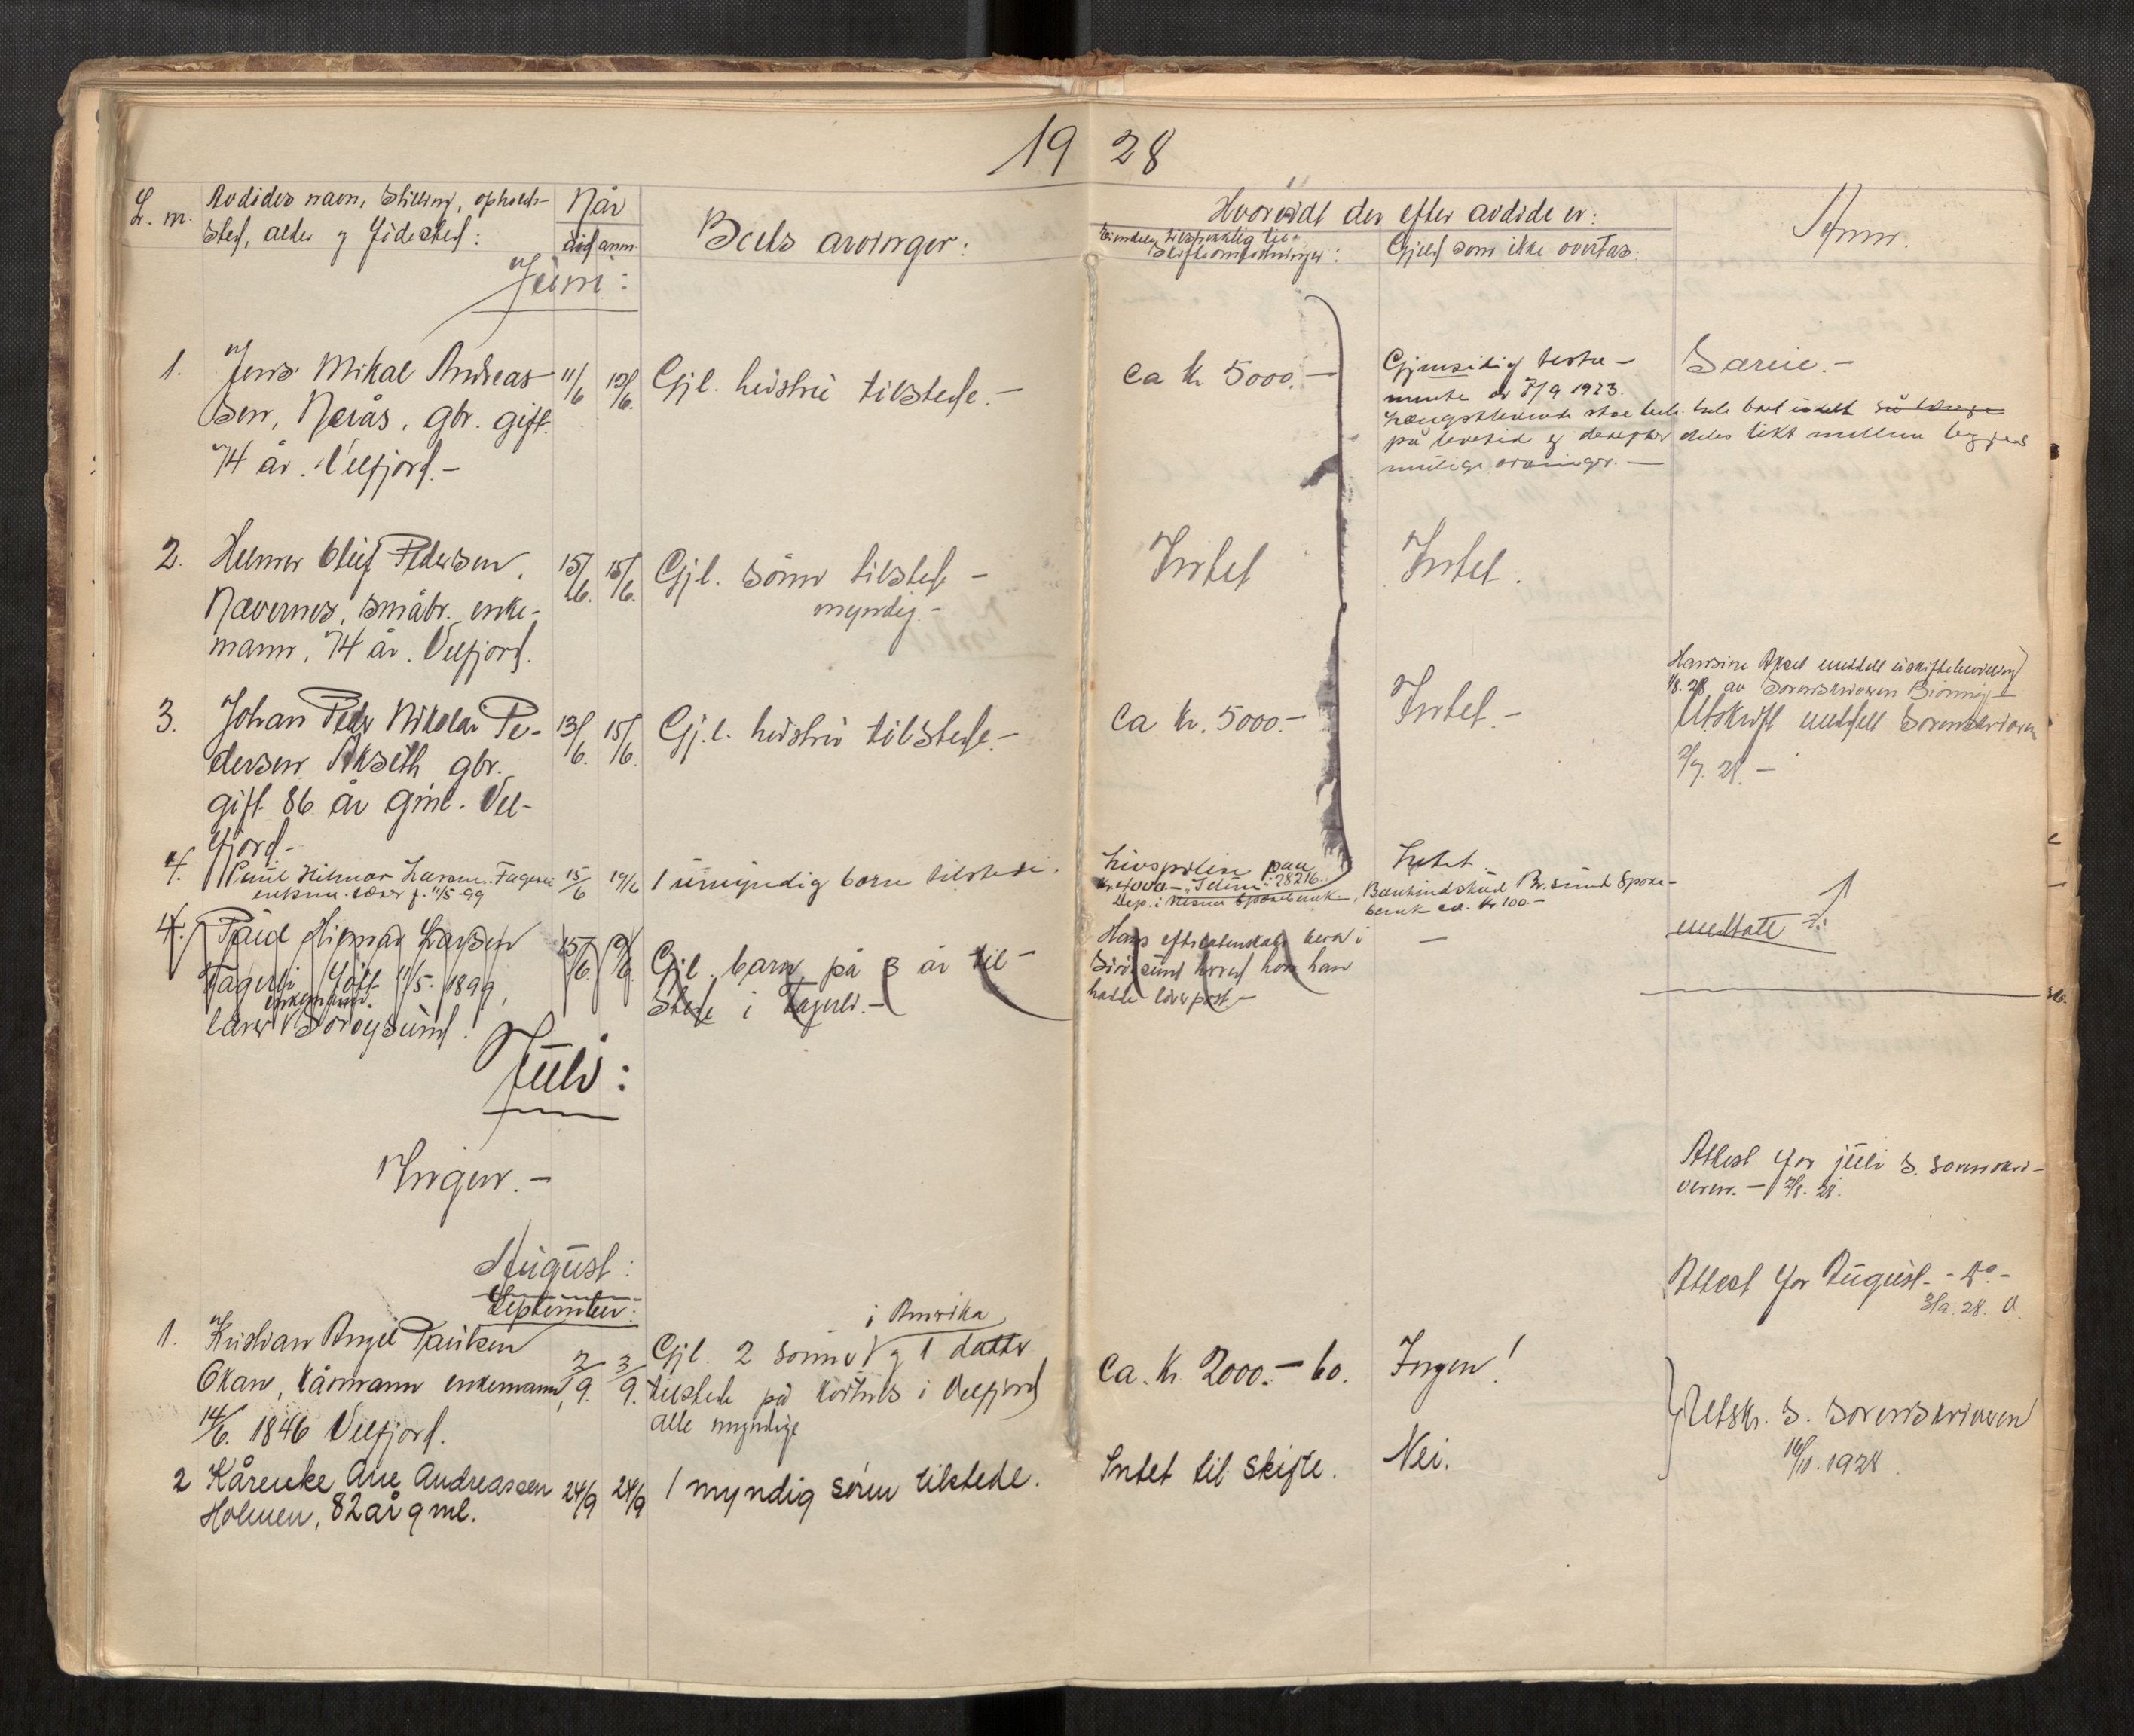 1928
L. nr.
Avdødes navn, Stilling, opholds-
sted, alder og fødested:
Når
død anm.
Boets arvinger:
Hvorvidt der efter avdøde er:
Eiendeler tilstrekkelig til
Skifteomkostninger:
Gjeld som ikke overtas:
Anm.
Juni:
1. Jens Mikal Andreas-
sen, Nerås, gbr. gift.
74 år. Velfjord.-
11/6 12/6.
Gjl. hustru tilstede.-
Ca kr 5000.-
Gjensidig testa-
mente av 7/9 1923.
Længstlevende skal hele boet så længe
på levetid og derefter deles likt mellem begges
mulige arvinger.-
Særeie.-
2. Helmer Oluf Pedersen,
Nævernes, småbr. enke-
mann, 74 år. Velfjord.
15/6. 15/6.
Gjl. sønn tilstede-
myndig.-
Intet
Intet.
3. Johan Peder Nikolai Pe-
dersen Akseth gbr.
gift 86 år gml. Vel-
fjord.-
13/6. 15/6.
Gj.l. hustru tilstede.-
Ca kr. 5000.-
Intet.-
Hansine meddelt uskiftebevilling
1/8. 28 av Sorenskriveren Brønnøy-
Utskrift meddelt Sorenskriveren
2/7. 28.-
4. Paul Hilmar Larsen. Fagerli
enkem. lærer f. 11/5-99
15/6 19/6
1 umyndig barn tilstede.
Livspolise paa
kr. 4000- "Idun" 28216.
Dep. i Vefsn Sparebank.
Intet.
Bankindskud Br.sund Spare-
bank ca. kr 100.-
4. Paul Hilmar Larsen
Fagerli født 11/5. 1899,
enkemann.
lærer i Sørøysund.
15/6. 19/6.
Gjl. barn på 3 år til-
stede i Fagerli.-
Hans efterlatenskaper bero i
Sørøysund hvor han
hadde lærerpost.-
-
meddelt
Juli:
Ingen.-
Attest for juli s. sorenskri-
veren.- 2/8. 28.
August:
Attest for August - do-
3/9. 28.
September:
1. Kristian Angel Paulsen
Okan, kårmann enkemann,
14/6. 1846 Velfjord.
2/9. 3/9.
i Amerika
Gjl. 2 sønner og 1 datter
tilstede på Hortnes i Velfjord
alle myndige
Ca. kr 2000.- bo.
Ingen!
Utskr. s. sorenskriveren
16/11. 1928.
2 Kårenke Ane Andreassen
Holmen, 82 år gml.
24/9 24/9
1 myndig sønn tilstede.
Intet til skifte.
Nei.